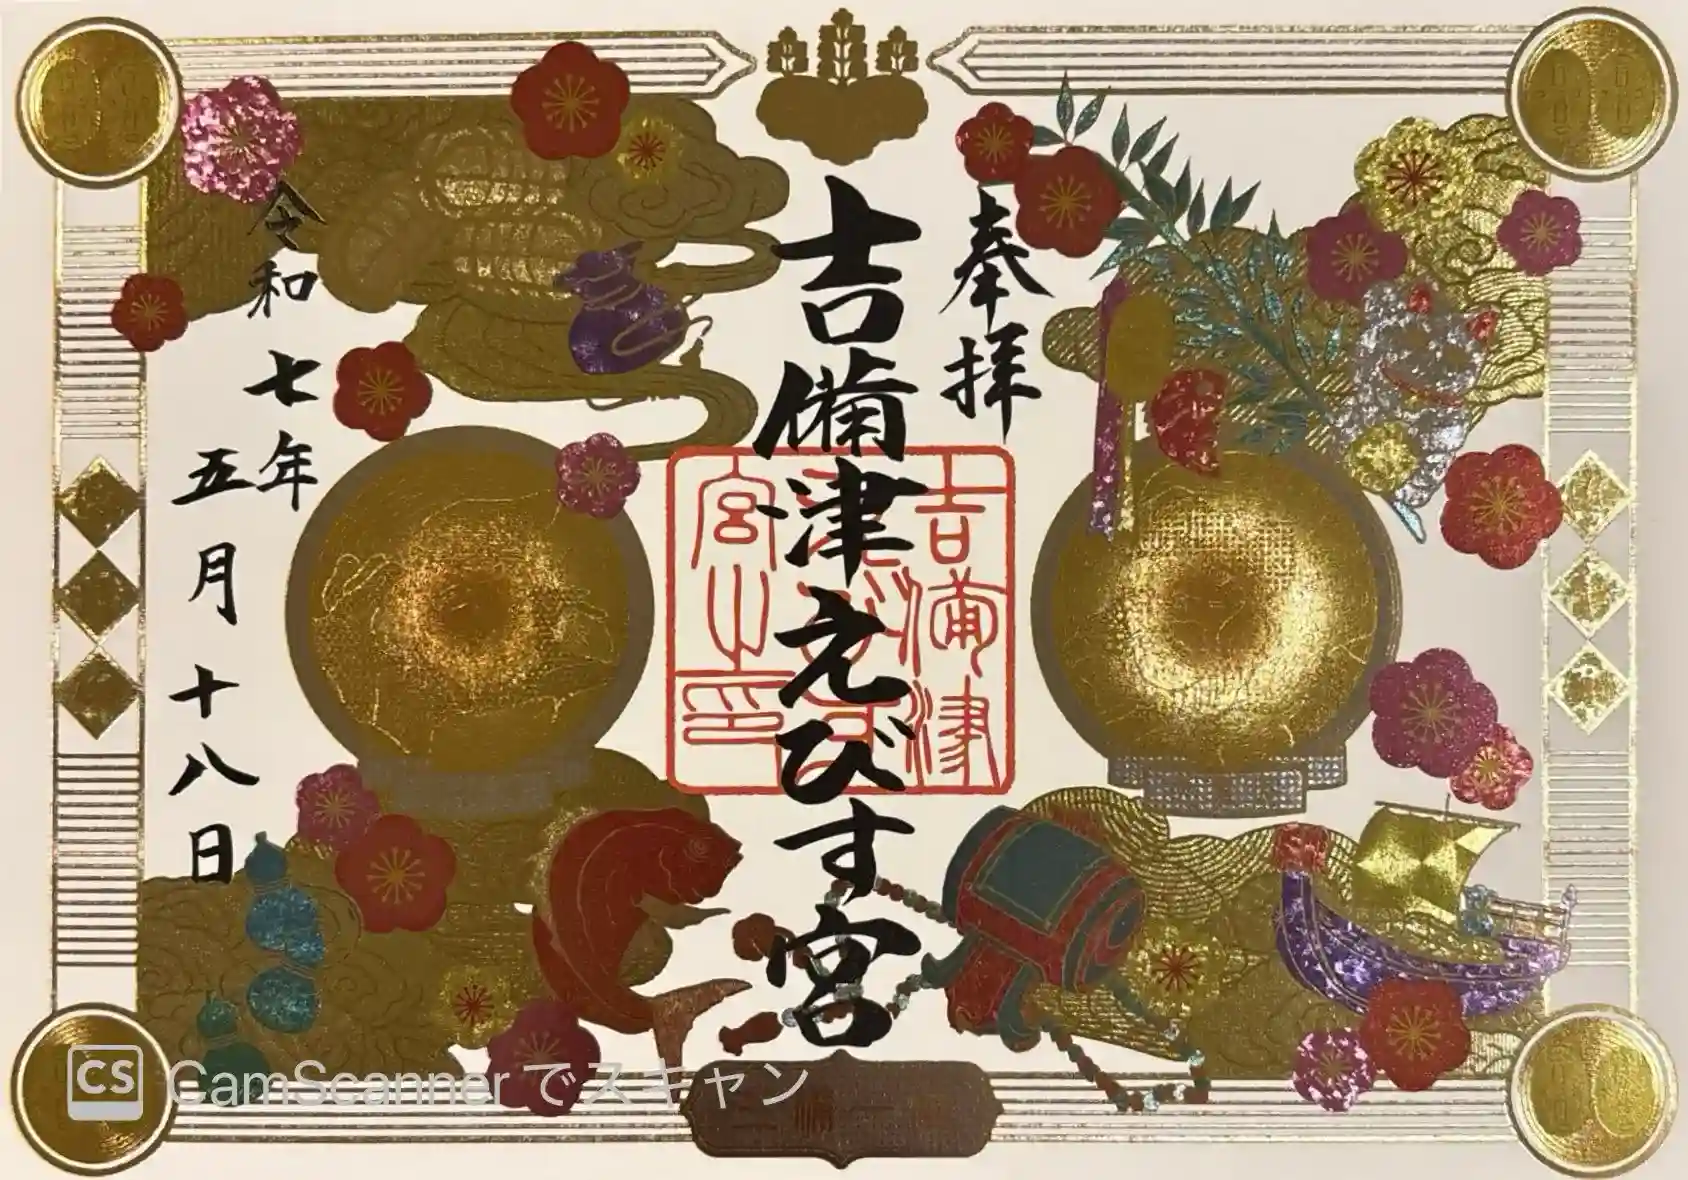 奉拝
吉備津えびす宮
吉備津
宮之印
令和七年
五月十八日
CS CamScannerでスキャン